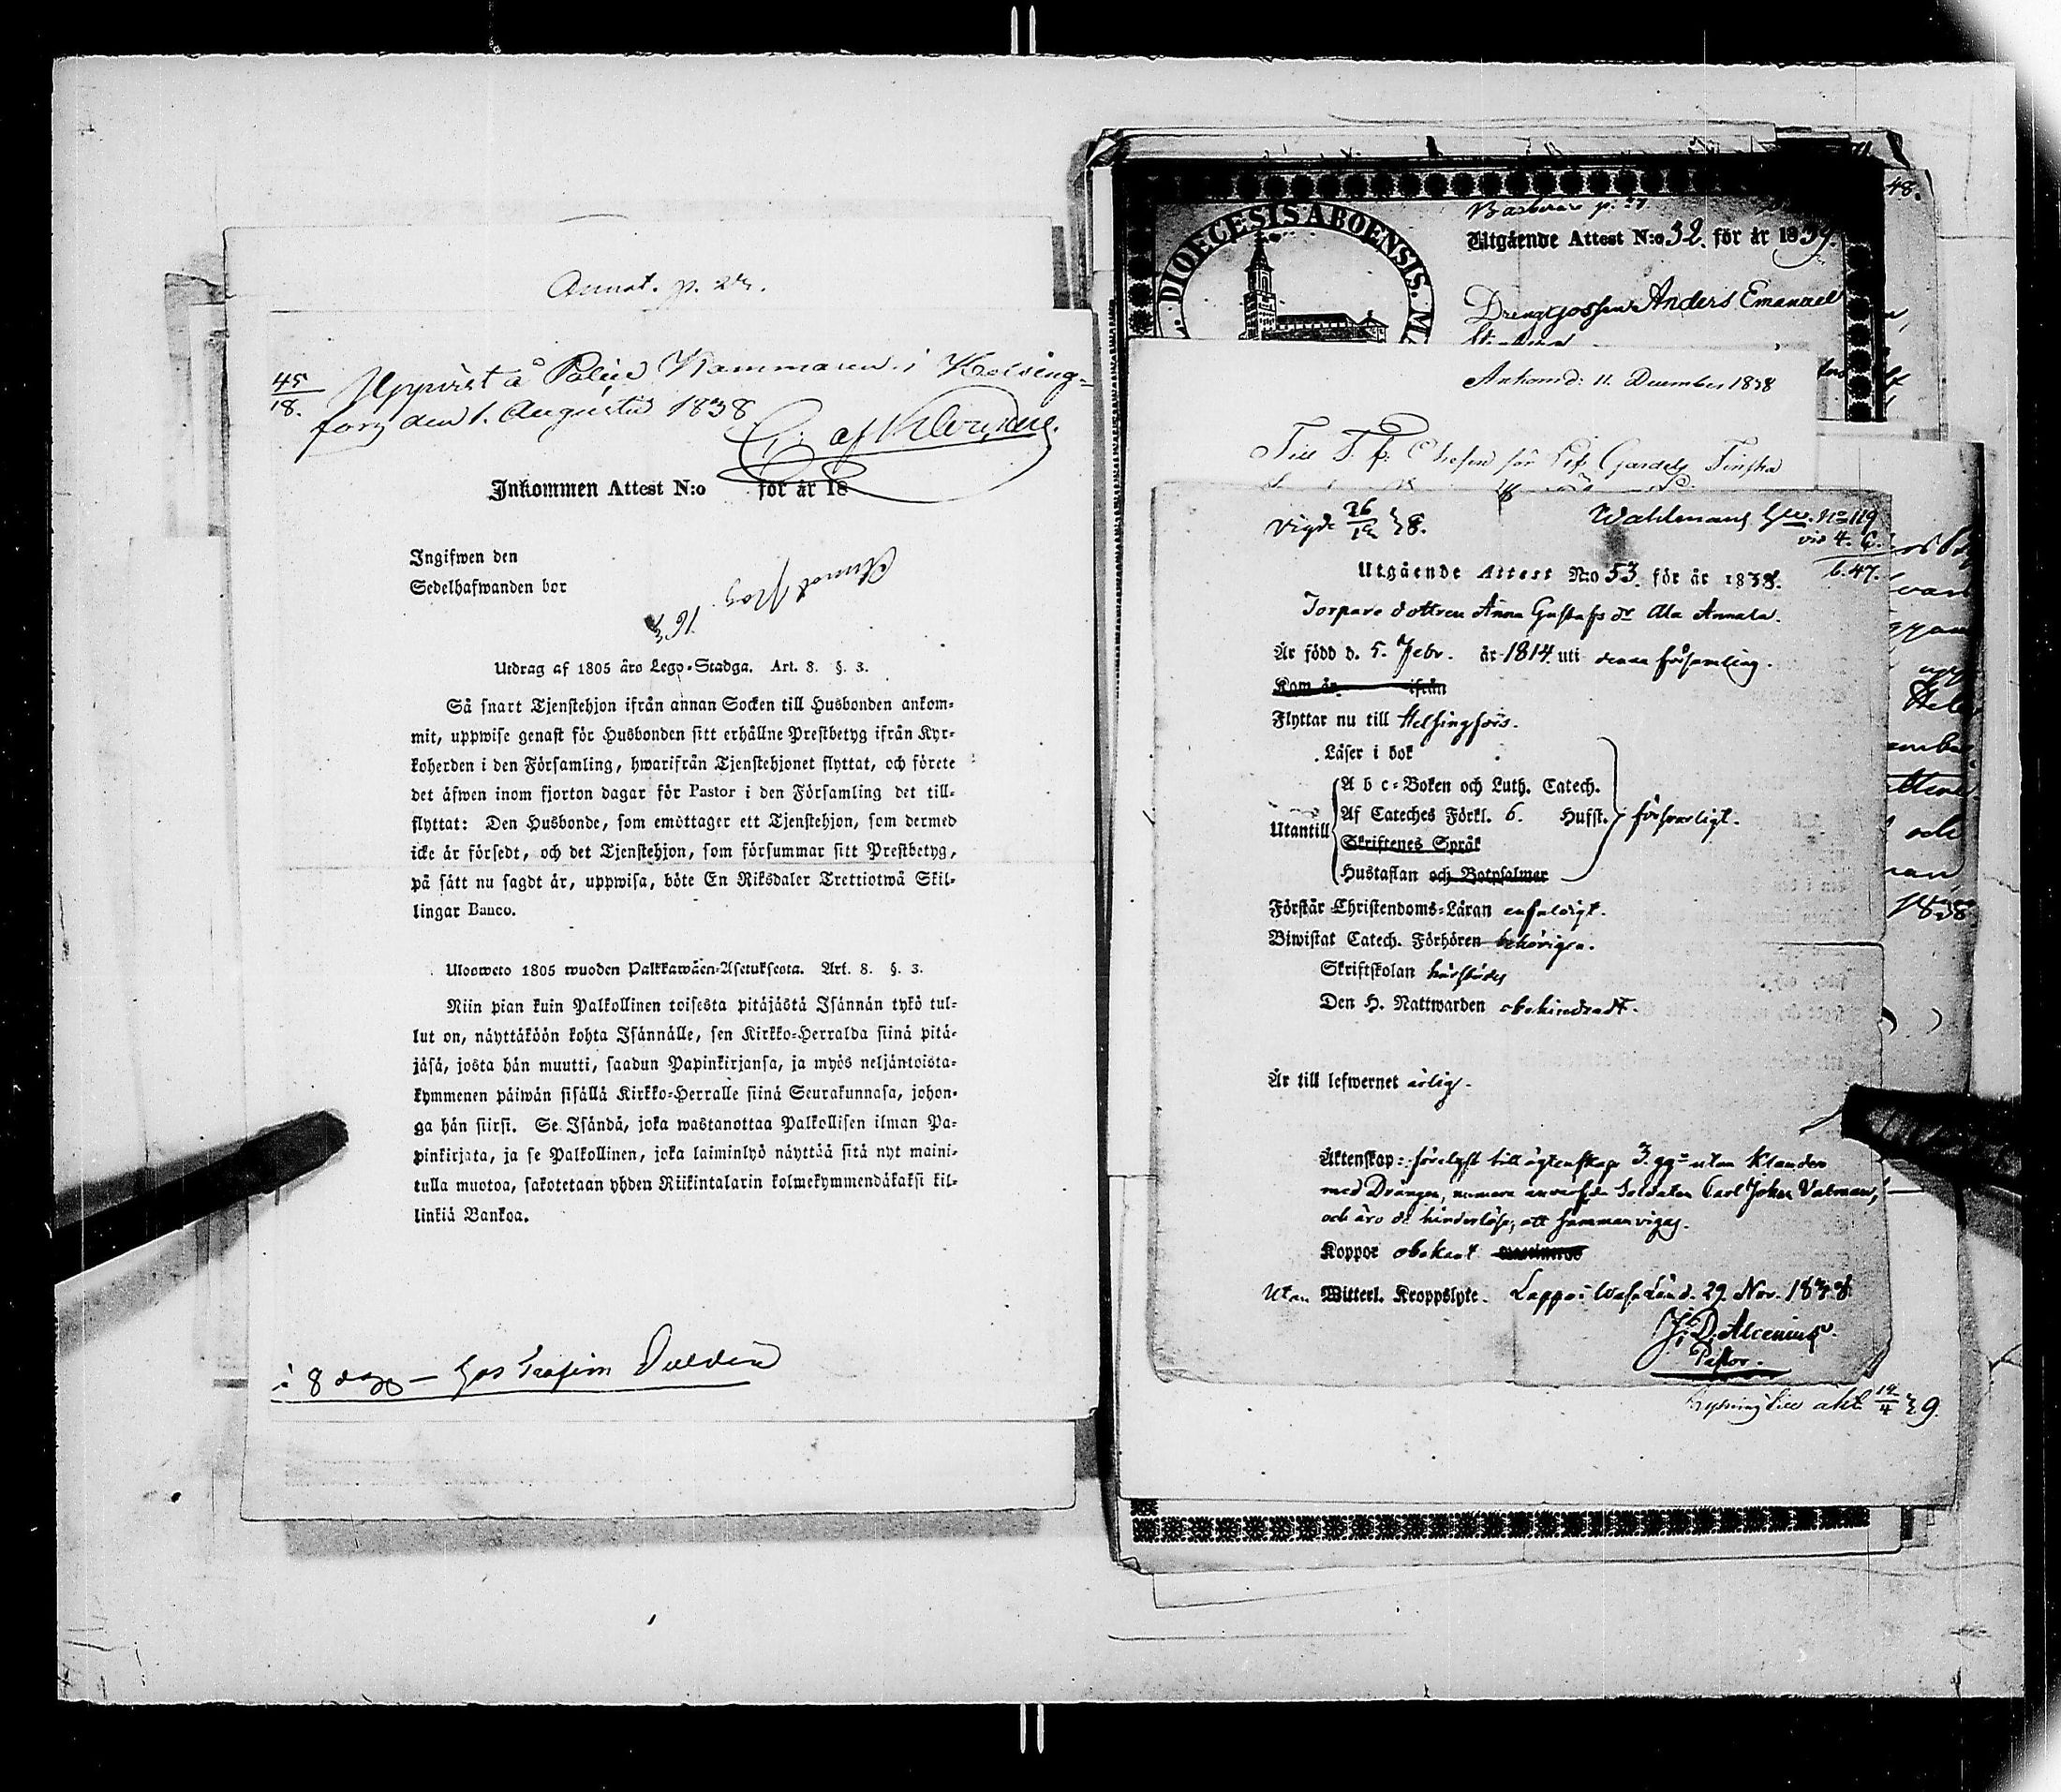 Annot. p.
45/18. Uppvist å Police Kammaren i Helsing-
fors den 1. Augusti 1838
Inkommen Attest N:o för år 18
Ingifwen den
Sedelhafwanden bor
Annot. pag. 163
Utdrag af 1805 års Lego-Stadga. Art. 8. §. 3.
Så snart Tjenstehjon ifrån annan Socken till Husbonden ankom-
mit, uppwise genast för Husbonden sitt erhållne Prestbetyg ifrån Kyr-
koherden i den Församling, hwarifrån Tjenstehjonet flyttat, och förete
det äfwen inom fjorton dagar för Pastor i den Församling det till-
flyttat: Den Husbonde, som emottager ett Tjenstehjon, som dermed
icke är försedt, och det Tjenstehjon, som försummar sitt Prestbetyg,
på sätt nu sagdt är, uppwisa, böte En Riksdaler Trettiotwå Skil-
lingar Banco.
Ulosweto 1805 wuoden Palkkawäen-Asetuksesta. Art. 8. §. 3.
Niin pian kuin Palkollinen toisesta pitäjästä Isännän tykö tul-
lut on, näyttäköön kohta Isännälle, sen Kirkko-Herralda siinä pitä-
jäsä, josta hän muutti, saadun Papinkirjansa, ja myös neljäntoista-
kymmenen päiwän sisällä Kirkko-Herralle siinä Seurakunnasa, johon-
ga hän siirsi. Se Isändä, joka wastanottaa Palkollisen ilman Pa-
pinkirjata, ja se Palkollinen, joka laiminlyö näyttää sitä nyt maini-
tulla muotoa, sakotetaan yhden Riikintalarin kolmekymmendäkaksi kil-
linkiä Bankoa.
i 8 dagar — hos
DIOECESIS ABOENSIS.
48.
Utgående Attest N:o 32. för år 1839.
Drenggossen Anders Emanuel
Ankom d: 11. December 1838
Till T. f. Chefen för Lif Gardets Finska
Vigde 26/12 38.
Wahlmans N:o 119
vid 4. C.
b. 47.
Utgående Attest N:o 53. för år 1838.
Torpare dottren Anna Gustafs dr Ala Annala.
Är född d. 5. Febr. år 1814. uti denna församling.
Kom år ifrån
Flyttar nu till Helsingfors.
Läser i bok
A b c-Boken och Luth. Catech.
Utantill Af Cateches Förkl. 6. Hufst. försvarligt.
Skriftenes Språk
Hustaflan och Botpsalmer
Förstår Christendoms-Läran enfaldigt.
Biwistat Catech. Förhören behörigen.
Skriftskolan härstädes
Den H. Nattwarden obehindradt.
Är till lefwernet ärlig.
Äktenskap: förelyst till ägtenskap 3. ggr utan klander
med Drängen, numera anvarfde Soldaten Carl Johan Valman,
och äro de hinderlöse, att sammanvigas.
Koppor obekant
Utan Witterl. Kroppslyte. Lappo i Wasa Län d. 29. Nov. 1838.
J. D. Alcenius.
Pastor.
Lysning till äkt. 14/4 39.
1838